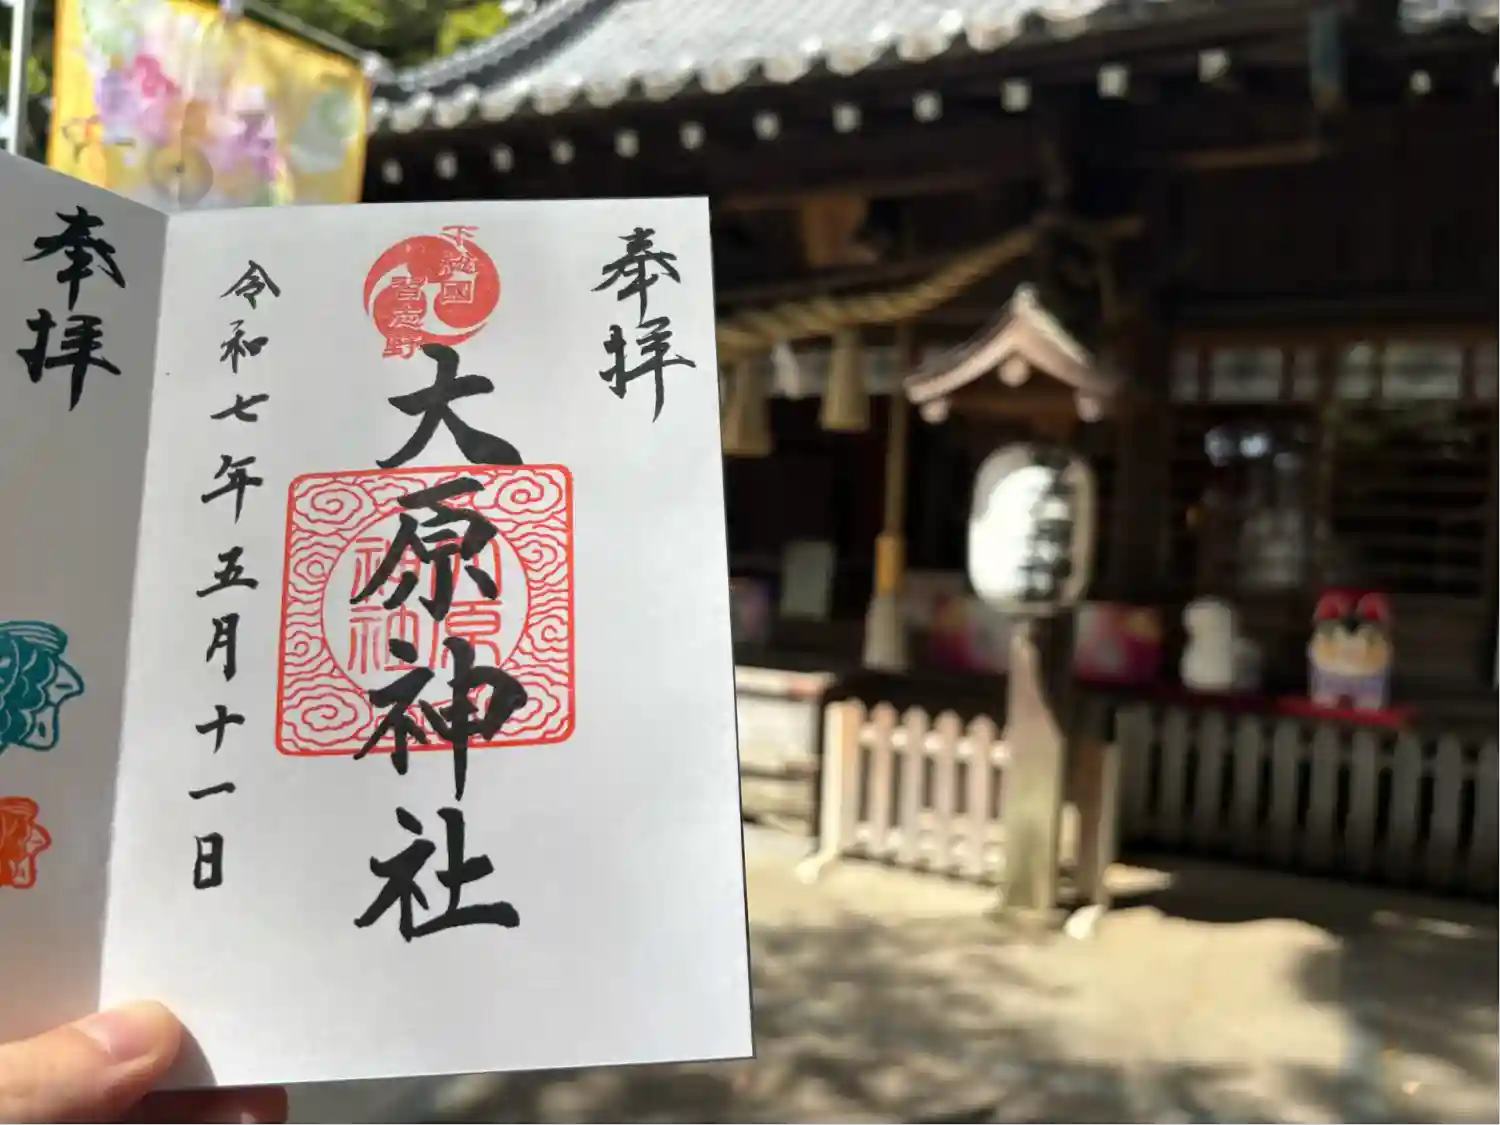 奉拝
下総國
習志野
大原神社
大原
神社
令和七年五月十一日
奉拝